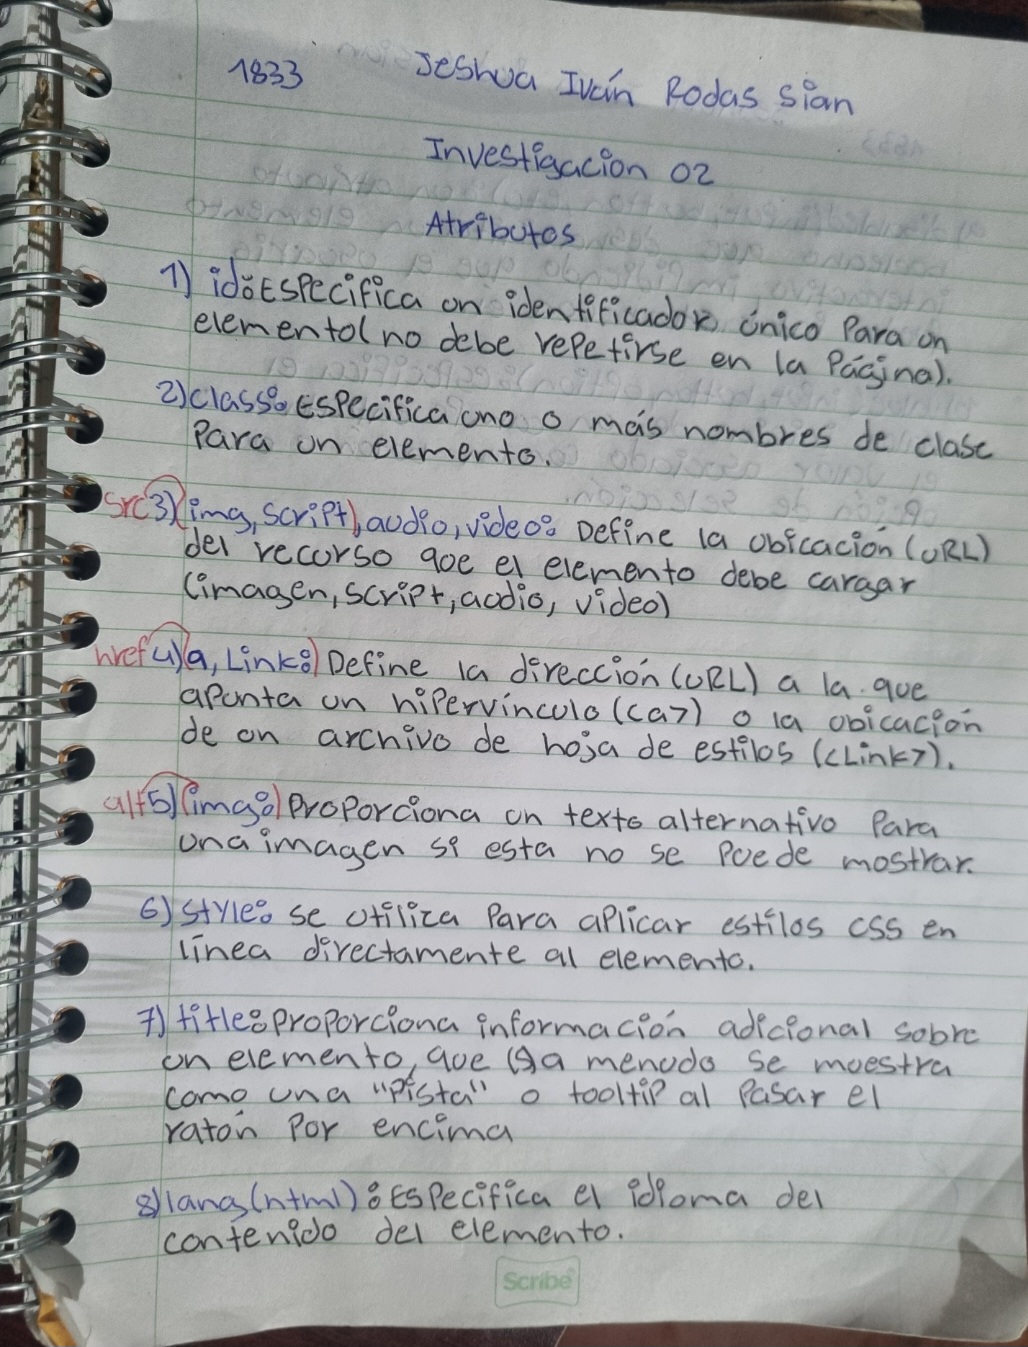 1833 Jeshua Iván Rodas Sian
Investigacion 02
Atributos
1) id: Especifica un identificador único Para un
elemento( no debe repetirse en la Página).
2) class: Especifica uno o más nombres de clase
Para un elemento.
src 3) (img, script), audio, video: Define la ubicación (URL)
del recurso que el elemento debe cargar
(imagen, script, audio, video)
href 4) (a, Link:) Define la dirección (URL) a la que
apunta un hipervínculo (<a>) o la ubicación
de un archivo de hoja de estilos (<Link>).
alt 5) (img:) Proporciona un texto alternativo Para
una imagen si esta no se Puede mostrar.
6) style: se utiliza Para aplicar estilos css en
línea directamente al elemento.
7) title: Proporciona información adicional sobre
un elemento, que a menudo se muestra
como una "Pista" o tooltip al Pasar el
ratón Por encima
8) lang (html): Especifica el idioma del
contenido del elemento.
Scribe